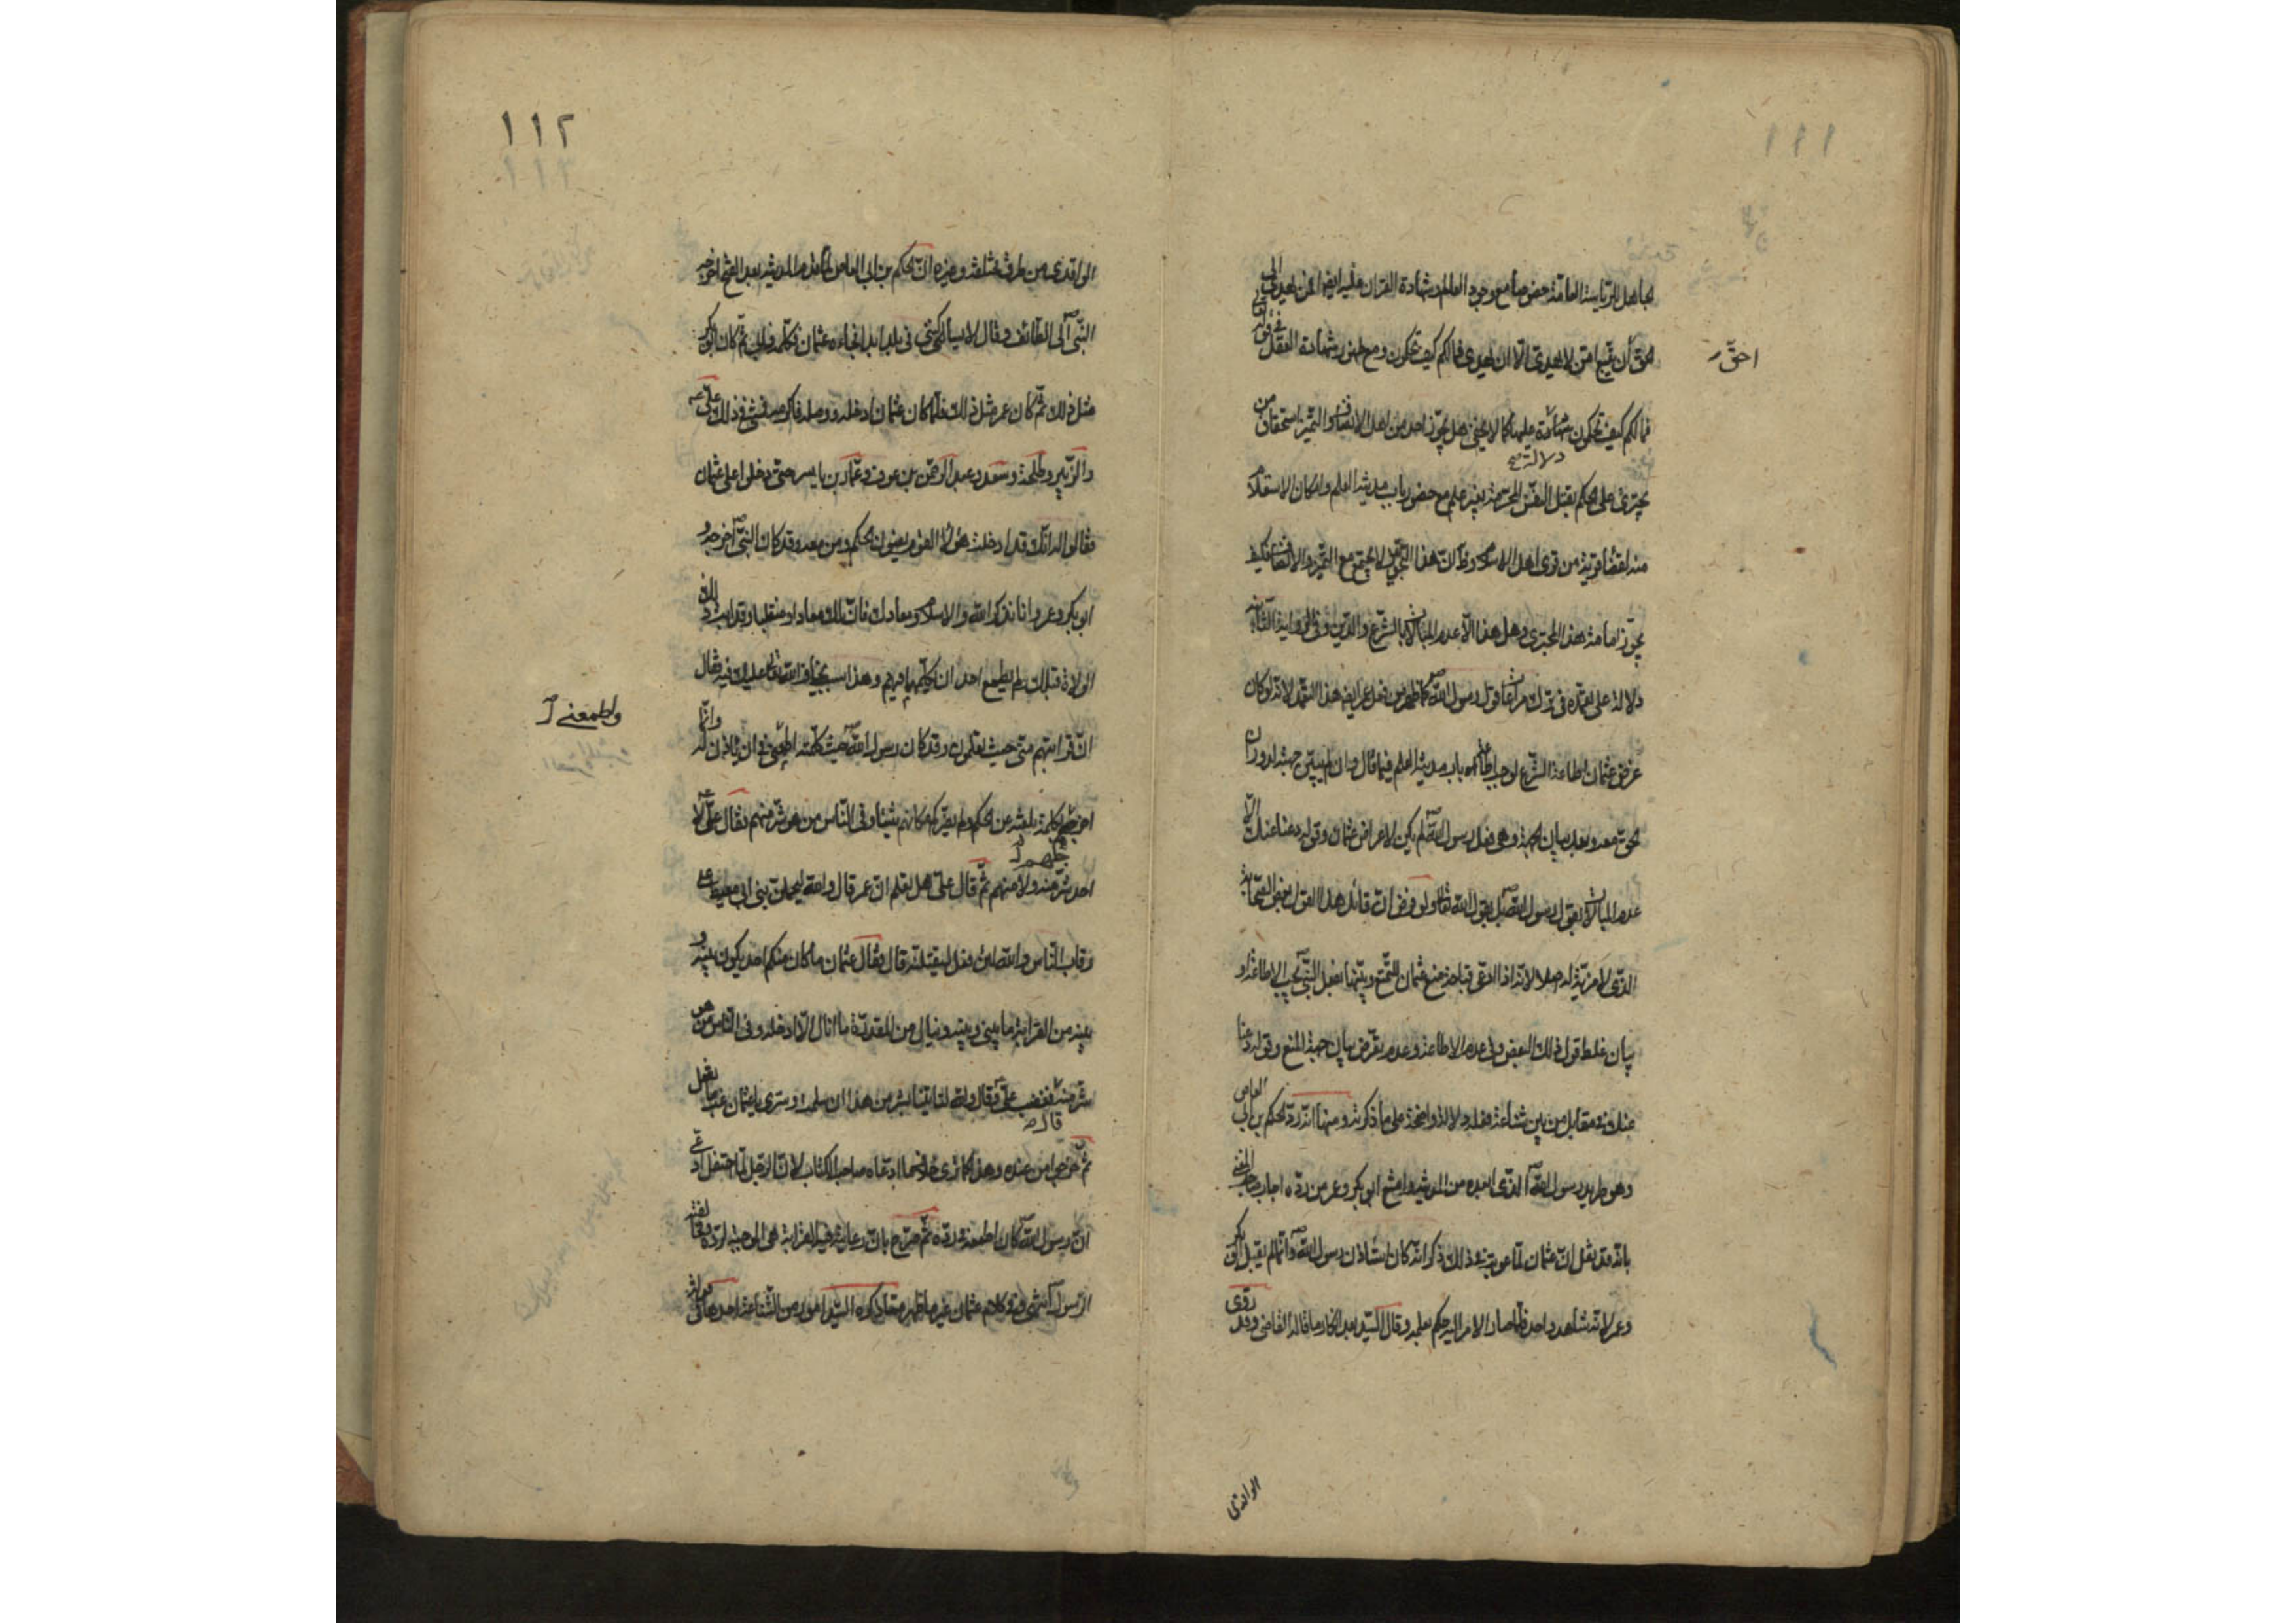 ١١١
لجاهل للرياسة العامة خصوصا مع وجود العالم وشهادة القران عليه ايضا افمن يهدي الى
الحق أن يتبع امّن لا يهدي الّا ان يهدى فما لكم كيف تحكمون ومع ظهور شهادة العقل في قوله تعالى
احقّ
فما لكم كيف تحكمون شهادة عليه كما لا يخفى هل يجوّز احد من اهل الانصاف والتميز استحقاق من
دلالته
يجترئ على الحكم بقتل النفس المحرمة بغير علم مع حضور باب مدينة العلم وامكان الاستعلام
منه اقضا قرينة من قوى اهل الاسلام وظ ان هذا التجويز لا يجتمع مع التميز والانصاف فكيف
يجوّز امامة هذا المجترى وهل هذا الّا عدم المبالاة بالشرع والدين وفي الرواية الثانية
دلالة على تعمده في ترك مراعاة قول رسول الله كما ظهر من فعل عمر ايضا هذا التعمد لانه لو كان
غرض عثمان اطاعة الشرع لوجب اطاعة باب مدينة العلم فيما قال وان لم يبين جهة لدوران
الحق معه وبعد بيان الجهة وهي فعل رسول الله لم يكن لاعراض عثمان وقوله دعنا عنك الّا
عدم المبالاة بقول رسول الله بل بقول الله تعالى ولو فرض ان قائل هذا القول بعض الصحابة
الذي لا مزية له اصلا لانه اذا ادعى قباحة منع عثمان المتمتع وبينها بفعل النبي يجب الاطاعة او
بيان غلط قول ذلك البعض وفي عدم الاطاعة وعدم تعرض بيان جهة المنع وقوله دعنا
عنك في مقابل من بين شناعة فعله دلالة واضحة على ما ذكرته ومنها انه ردّ الحكم بن ابي العاص
وهو طريد رسول الله الذي ابعده من المدينة وامتنع ابو بكر وعمر من ردّه اجاب صاحب المغني
بانه قد نقل ان عثمان لما عوتب في ذلك ذكر انه كان استاذن رسول الله وانما لم يقبل ابو بكر
وعمر لانه شاهد واحد فلما صار الامر اليه حكم بعلمه وقال السيد بعد انكار ما قاله القاضي وقد روى
الواقدي
١١٢
الواقدي من طرق مختلفة وغيره انّ الحكم بن ابي العاص لمّا قدم المدينة بعد الفتح اخرجه
النبي الى الطائف وقال لا يساكنني في بلد ابدا فجاءه عثمان فكلمه فابى ثم كان ابو بكر
مثل ذلك ثم كان عمر مثل ذلك فلما كان عثمان ادخله ووصله فاكرمه فمشى في ذلك عليّ
والزبير وطلحة وسعد وعبد الرحمن بن عوف وعمّار بن ياسر حتى دخلوا على عثمان
فقالوا له انك قد ادخلت هؤلاء القوم يعنون الحكم ومن معه وقد كان النبيّ اخرجه و
ابو بكر وعمر وانا نذكر الله والاسلام ومعادك فان لك معادا ومنقلبا وقد ابت ذلك
الولاة قبلك ولم يطمع احد ان يكلمهما فيهم وهذا سبب نخاف الله تعالى عليك فيه فقال
ان قرابتهم منّي حيث تعلمون وقد كان رسول الله حيث كلمته اطمعني في ان ياذن له وانما
واطمعني
اخرجهم لكلمة بلغته عن الحكم ولم يضركم مكانهم شيئا وفي الناس من هو شر منهم فقال عليّ لا
اجد شرّا منه ولا منهم ثم قال عليّ هل تعلم انّ عمر قال والله ليحملن بني ابي معيط على
رقاب الناس والله لئن فعل ليقتلنه قال وقال عثمان ما كان منكم احد يكون بينه و
بينه من القرابة ما بيني وبينه وينال من المقدرة ما انال الّا ادخله وفي الناس من هو
شر منه فغضب عليّ وقال والله لتاتينا بشر من هذا ان سلمت وسترى يا عثمان غب ما تفعل
قال
ثم خرجوا من عنده وهذا كما ترى خلاف ما ادعاه صاحب الكتاب لان الرجل لما احتفل ادعى
ان رسول الله كان اطمعه في ردّه ثم صرّح بان رعايته فيه القرابة هي الموجبة لرده ومخالفة
الرسول انتهى وفي كلام عثمان غير ما ظهر مما ذكره السيد امور من الشناعة احدها